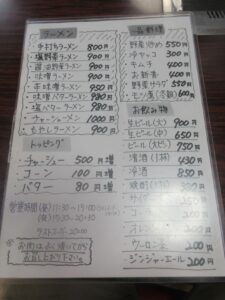 ラーメン
手打ちラーメン 800円
塩野菜ラーメン 900円
醤油野菜ラーメン 900円
味噌ラーメン 900円
辛味噌ラーメン 950円
味噌バターラーメン 980円
塩バターラーメン 980円
チャーシューメン 1000円
もやしラーメン 900円
トッピング
チャーシュー 500円増
コーン 100円増
バター 80円増
営業時間(昼)11:30~
(夜)17:30~20:30
ラストオーダー20:00
一品料理
野菜炒め 550円
冷ヤッコ 300円
キムチ 400円
お新香 400円
野菜サラダ 550円
モツ煮 600円
お飲み物
生ビール(大) 900円
生ビール(中) 650円
ビール 750円
清酒 430円
冷酒 850円
コーラ 200円
ウーロン茶 200円
ジンジャーエール 200円